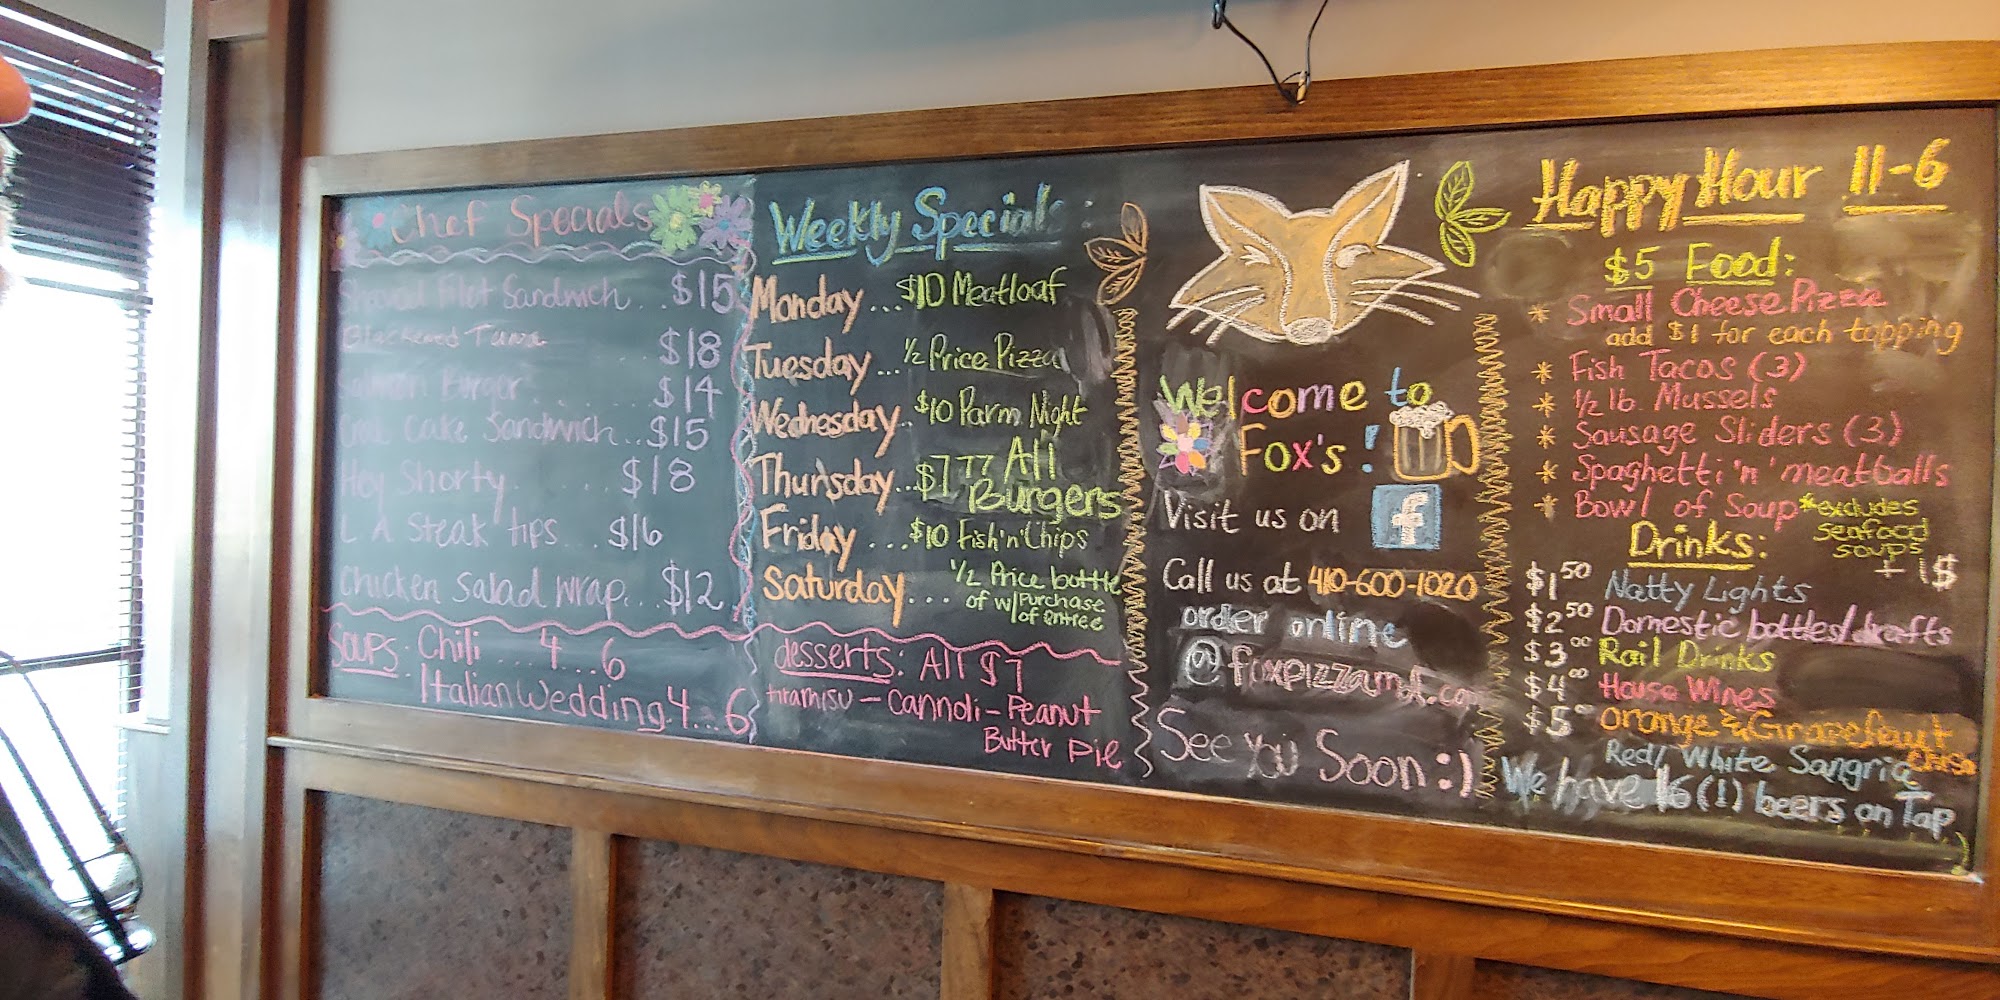 Chef Specials
Shaved Filet Sandwich .. $15
Blackened Tuna ... $18
Salmon Burger ..... $14
Crab Cake Sandwich.. $15
Hey Shorty ..... $18
L A Steak tips ... $16
Chicken Salad Wrap... $12
Soups: Chili ....4...6
Italian Wedding.4...6
Weekly Specials:
Monday ... $10 Meatloaf
Tuesday ... 1/2 Price Pizza
Wednesday.. $10 Parm Night
Thursday... $7.77 All Burgers
Friday ... $10 Fish'n'Chips
Saturday... 1/2 Price bottle
of w/ Purchase
of entree
desserts: All $7
tiramisu - Cannoli - Peanut
Butter pie
Welcome to
Fox's!
Visit us on f
Call us at 410-600-1020
order online
@foxpizzamd.com
See you Soon :)
Happy Hour 11-6
$5 Food:
* Small Cheese Pizza
add $1 for each topping
* Fish Tacos (3)
* 1/2 lb. Mussels
* Sausage Sliders (3)
* Spaghetti 'n' meatballs
* Bowl of Soup *excludes
seafood
soups
+ 1$
Drinks:
$1.50 Natty Lights
$2.50 Domestic bottles/drafts
$3.00 Rail Drinks
$4.00 House Wines
$5.00 Orange & Grapefruit
Crush
Red/White Sangria
We have 16 (!) beers on Tap